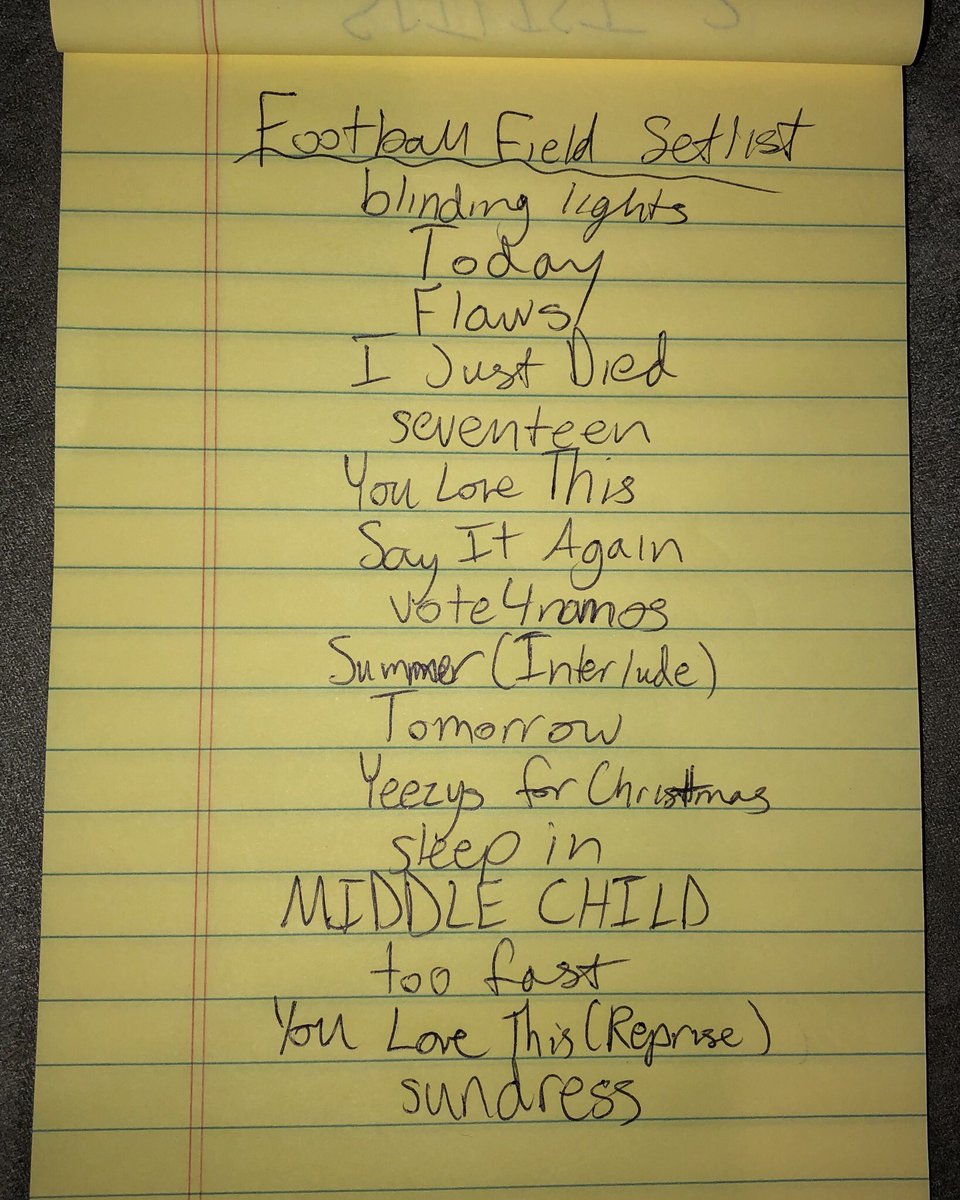 Football Field Setlist
blinding lights
Today
Flaws
I Just Died
seventeen
You Love This
Say It Again
vote4ramos
Summer (Interlude)
Tomorrow
Yeezys for Christmas
sleep in
MIDDLE CHILD
too fast
You Love This (Reprise)
sundress